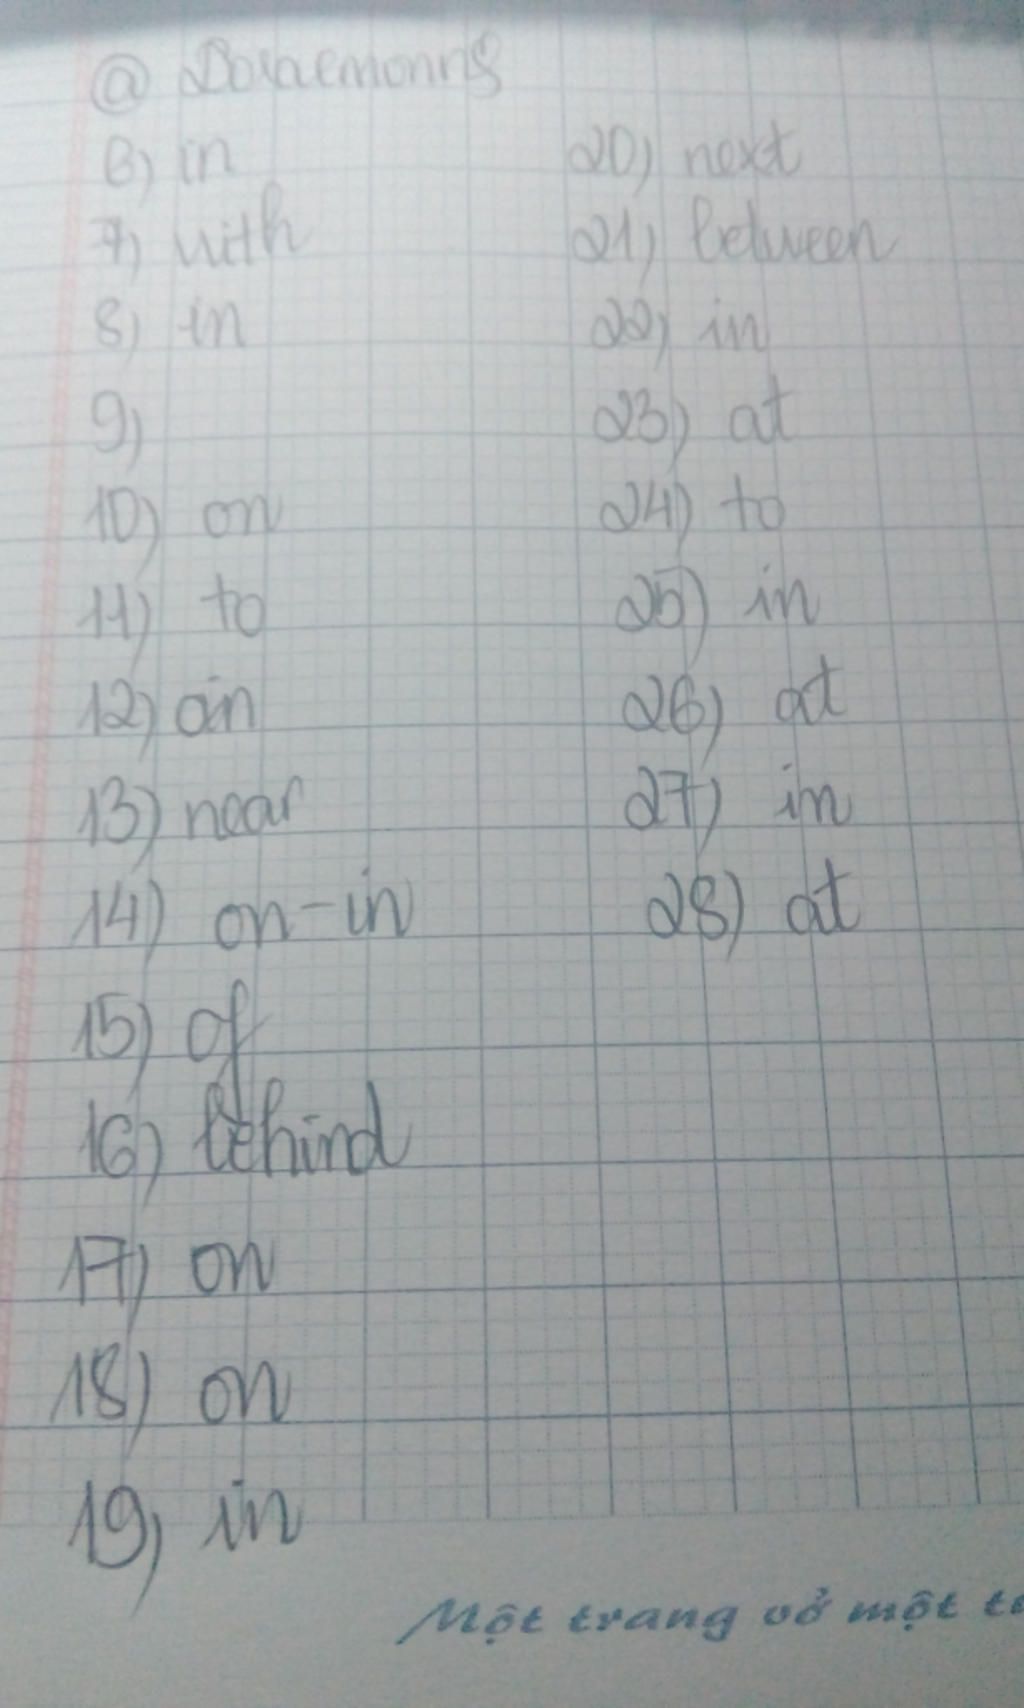 @ Doraemonng
6) in
7) with
8) in
9)
10) on
11) to
12)
13) near
14) on-in
15) of
16) behind
17) on
18) on
19) in
20) next
21) between
22) in
23) at
24) to
25) in
26) at
27) in
28) at
Một trang vở một